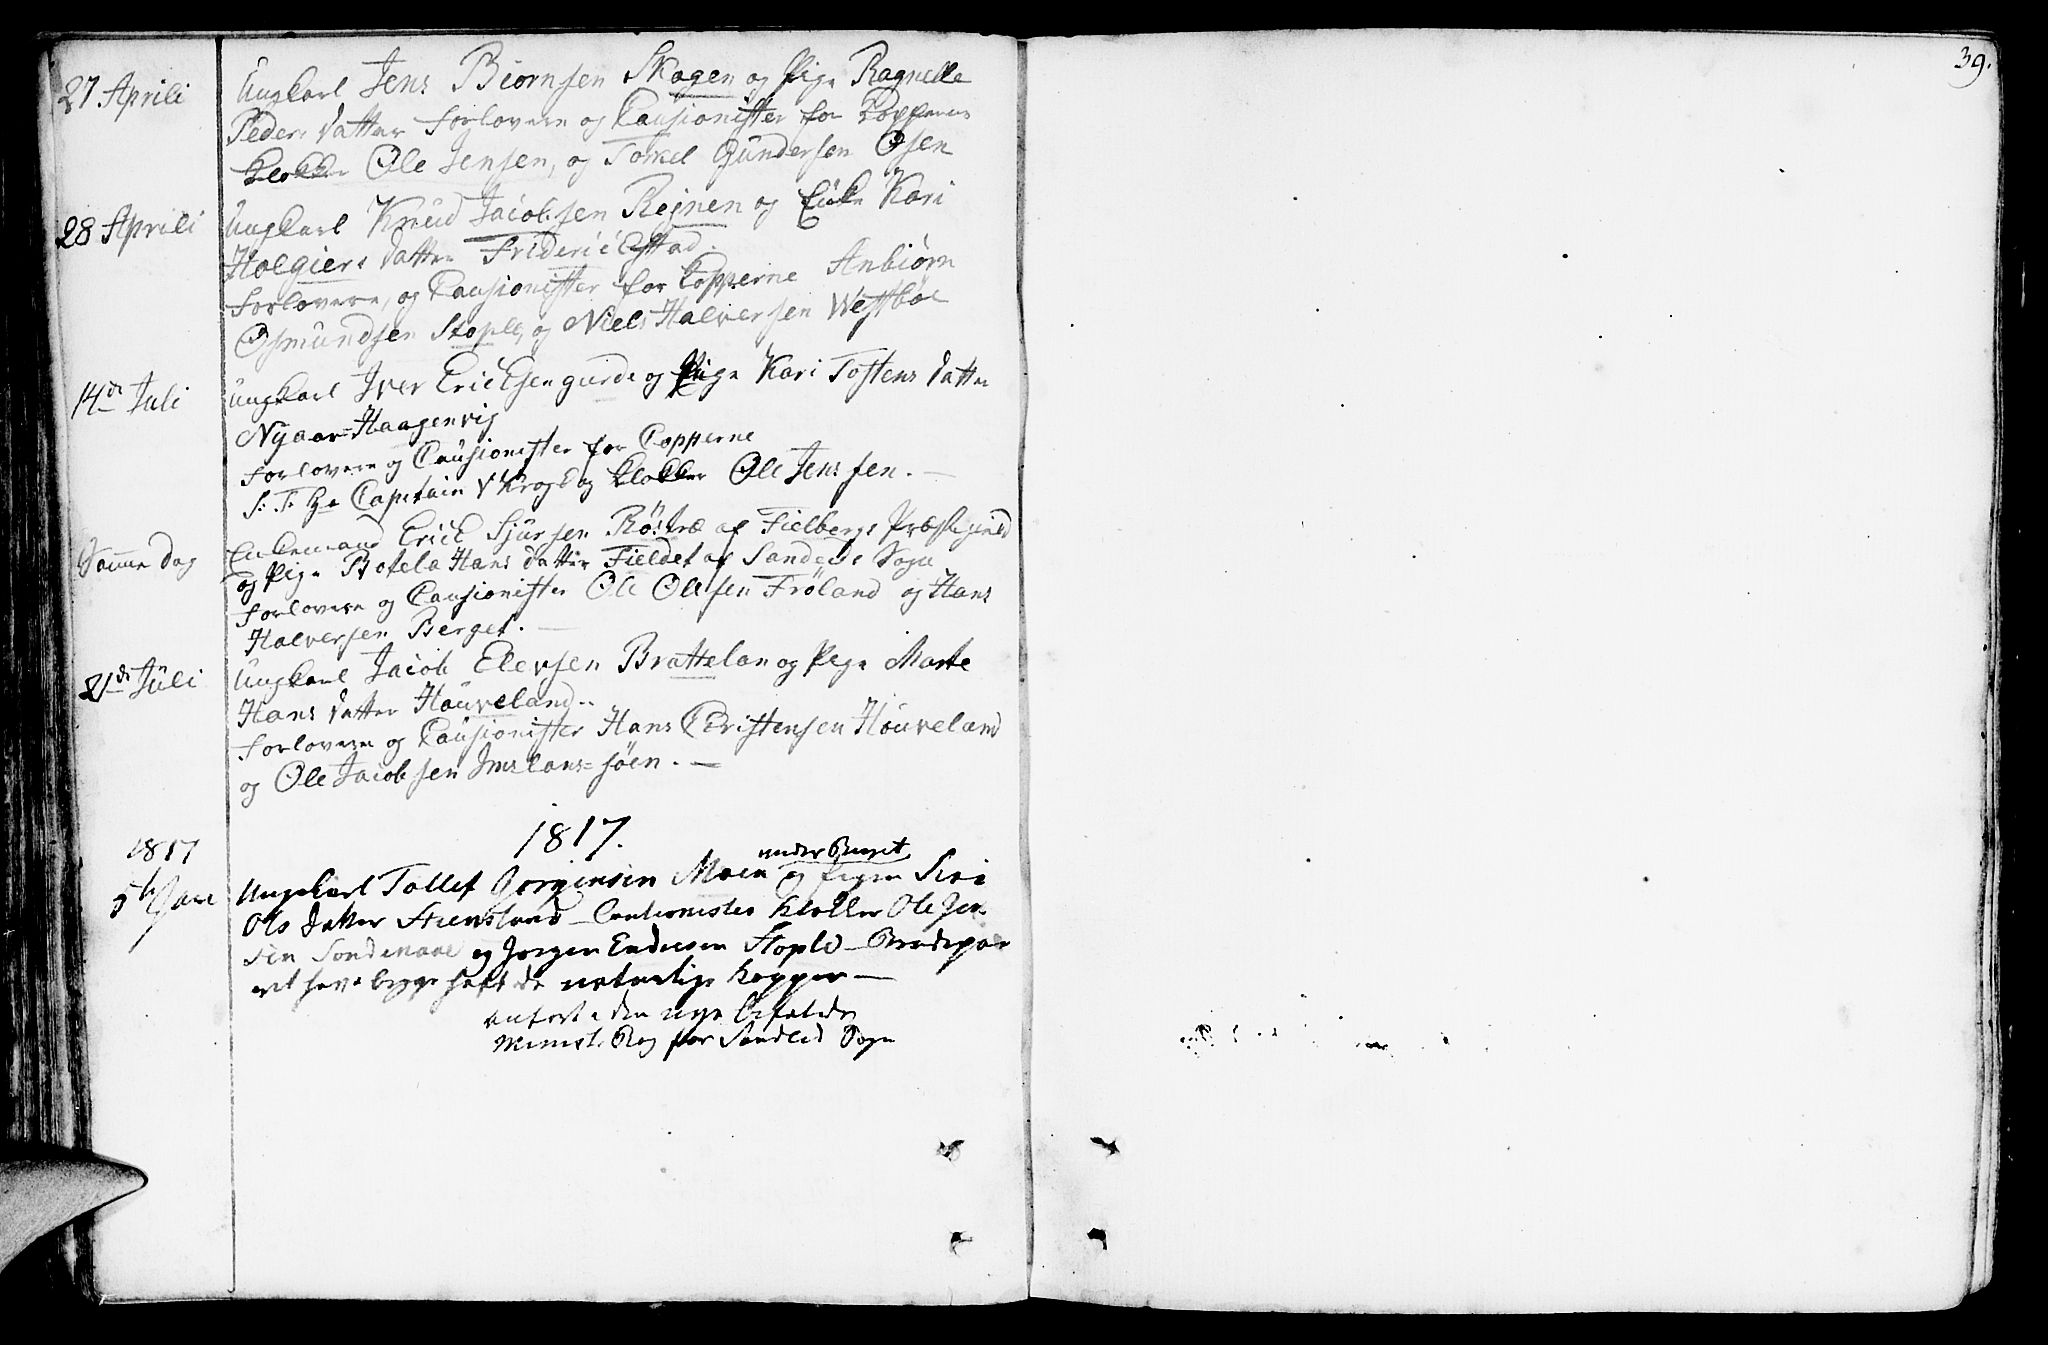 39.
27 Aprili
Ungkarl Jens Biörnsen Skogen og Pige Ragnelle
Peders datter forlovere og Causionister for Copperne
klokker Ole Jensen, og Torkel Gundersen Osen
28 Aprili
Ungkarl Knud Jacobsen Rejnen og Enke Kari
Holgiers datter Fridericstad.
forlovere, og Causionister for Copperne Anbiörn
Osmundsen Stople, og Niels Halversen Westböe
14de Juli
ungkarl Iver Ericksen gurde og Pige Kari Tostens datter
Nygaar=Haagenvig
forlovere og Causionister for Copperne
S: T: Hr Capitain V Krog og klokker Ole Jensen. —
Samme dag
Enkemand Erick Sjursen Röitræ af Fielbergs Præstegield
og Pige Botela Hans datter Fieldet af Sandeids Sogn
forlovere og Causionister Ole Olesen Fröland og Hans
Halversen Berget. —
21de Juli
Ungkarl Jacob Elevsen Brattelan og Pige Marte
Hans datter Houveland..
forlovere og Causionister Hans Christensen Houveland
og Ole Jacobsen Imslans=söen. —
1817.
1817
5te Jan
Ungekarl Tollef Jorgensen Moen og pigen Siri
Ols datter Stensland — Cautionister klokker Ole Jen
sen Söndenaae og Jorgen Endresen Stople — Brudepar
ret have begge haft de naturlige kopper —
anfort i den nye befalede
Minist. Bog for Sandeid Sogn